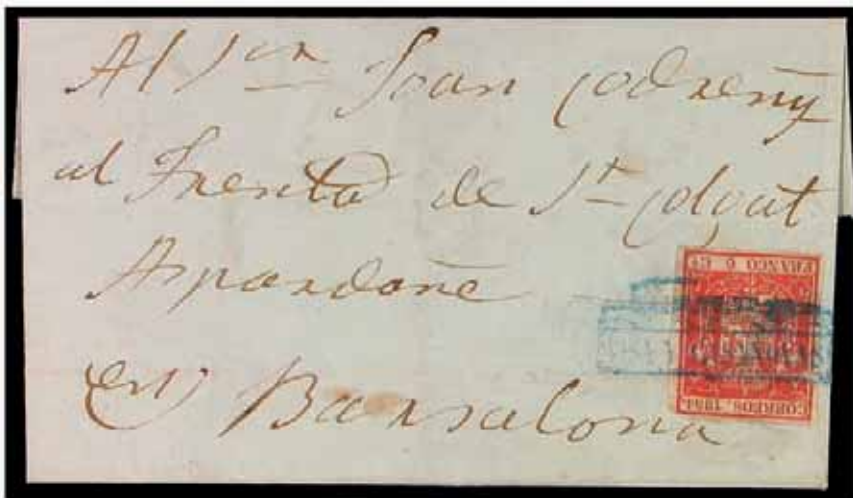 Al Sor Joan Codreny
al Frenta de St Colgat
Aspardañe
en Barsalona
FRANCO 6 Cs
CORREOS 1854